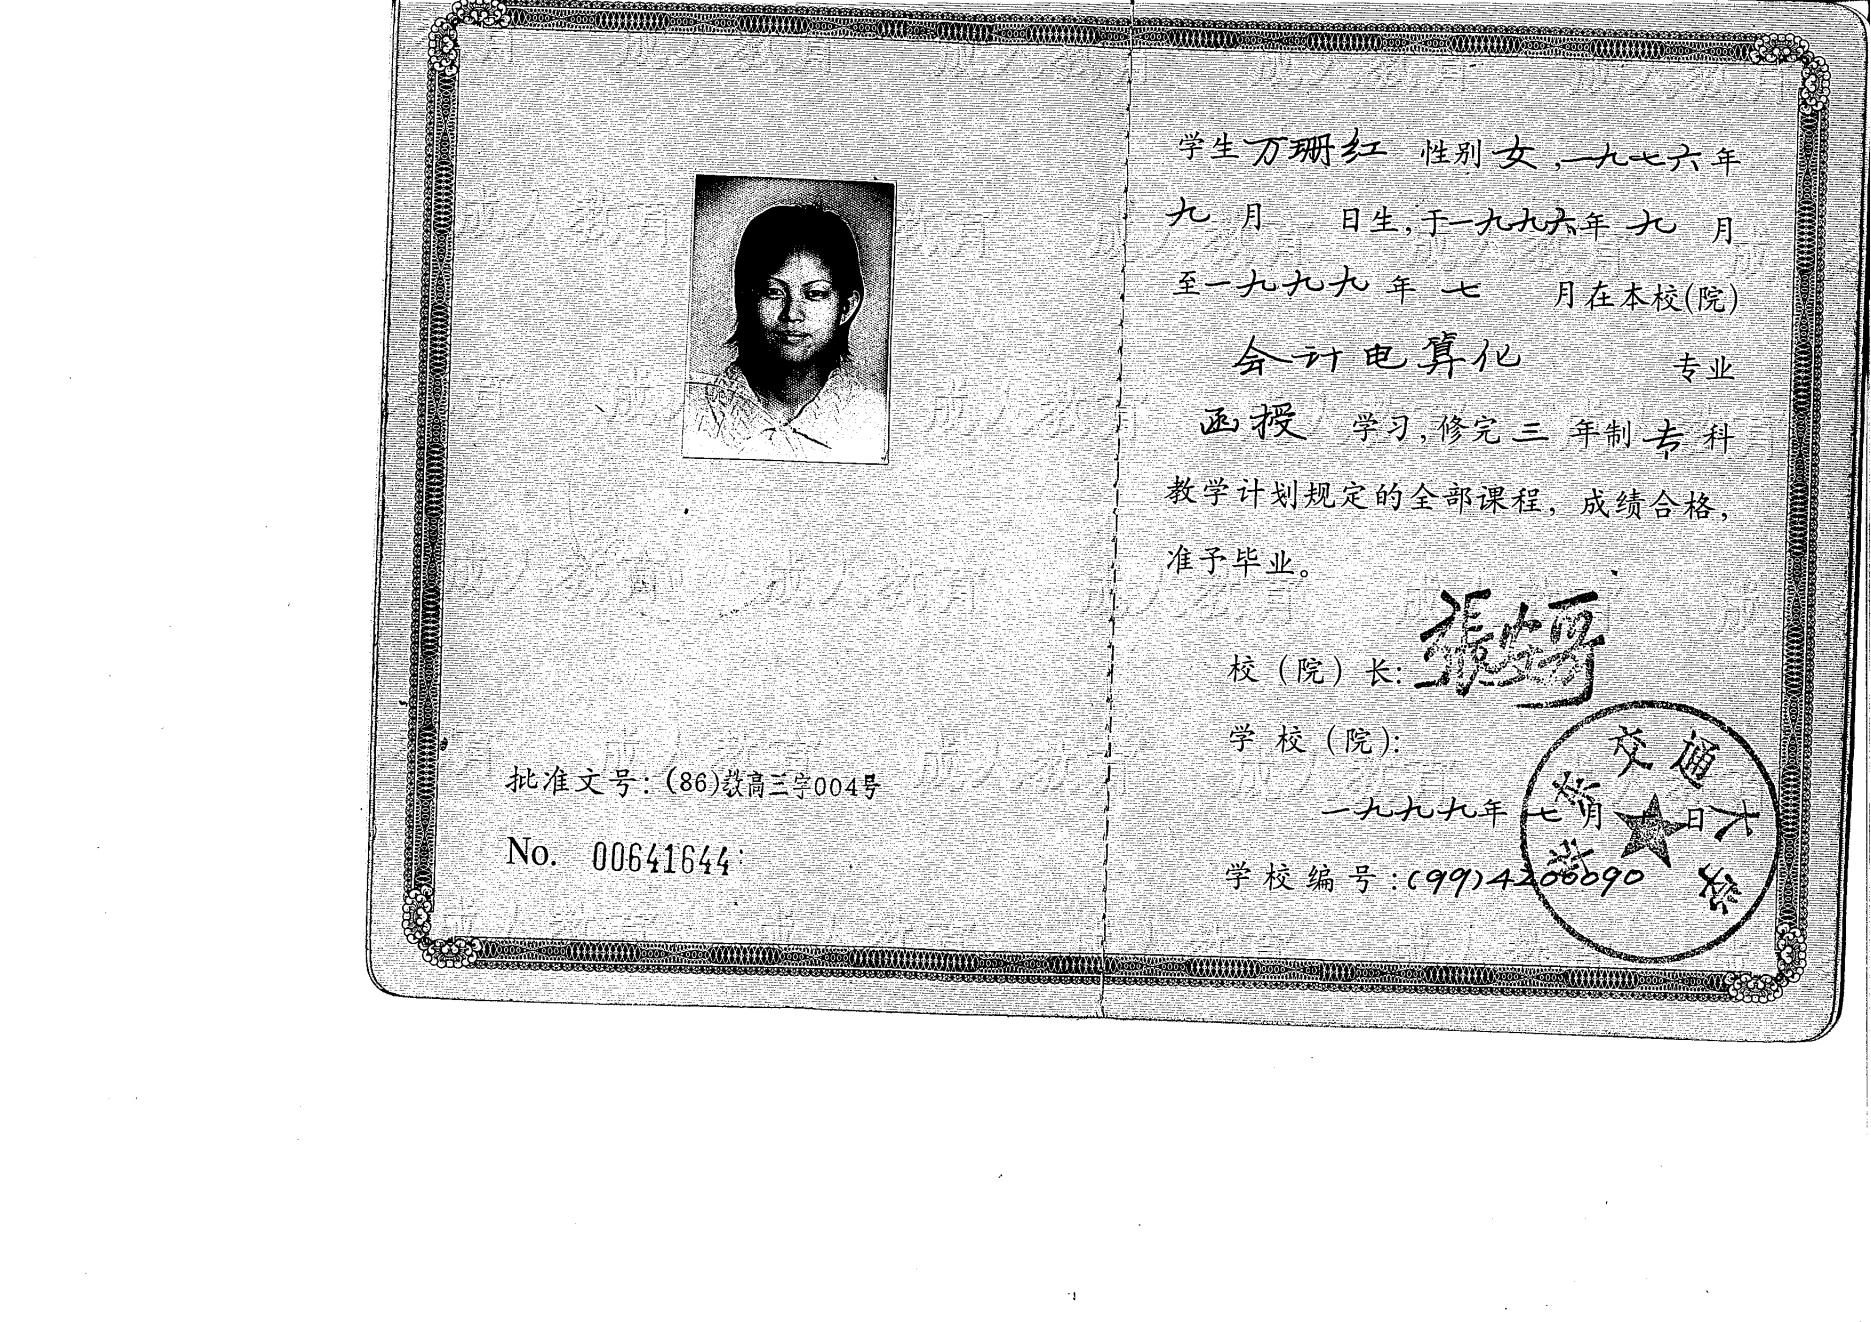 批准文号：(86)教高三字004号
No. 00641644
学生万珊红 性别女,一九七六年
九月 日生,于一九九六年九月
至一九九九年七月在本校(院)
会计电算化 专业
函授 学习,修完三年制专科
教学计划规定的全部课程，成绩合格，
准予毕业。
校（院）长:
学校(院):
华东交通大学
一九九九年七月 日
学校编号:(99)4200090
成人教育